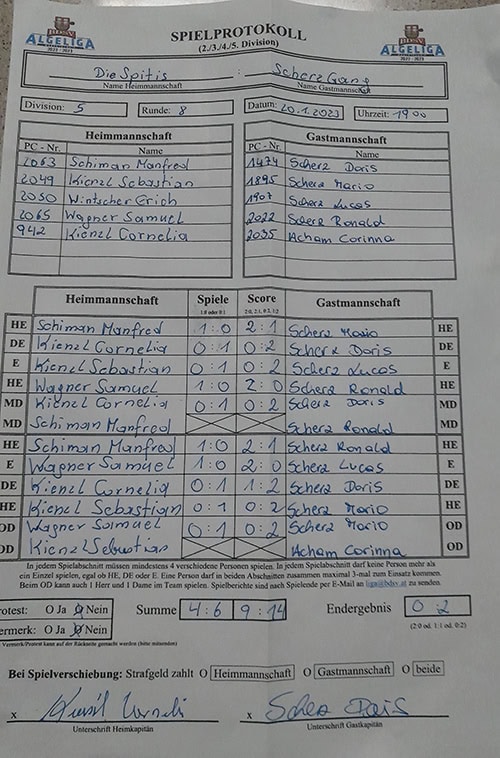 ALGELIGA
SPIELPROTOKOLL
ALGELIGA
2022 - 2023
(2./3./4./5. Division)
2022 - 2023
Die Spitis : Scherz Gang
Name Heimmannschaft Name Gastmannschaft
Division: 5 Runde: 8 Datum: 20.1.2023 Uhrzeit: 19 00
Heimmannschaft Gastmannschaft
PC - Nr. Name PC - Nr. Name
2063 Schiman Manfred 1474 Scherz Doris
2049 Kienzl Sebastian 1895 Scherz Mario
2050 Wintscher Erich 1907 Scherz Lucas
2065 Wagner Samuel 2022 Scherz Ronald
942 Kienzl Cornelia 2035 Acham Corinna
Heimmannschaft Spiele Score Gastmannschaft
1:0 oder 0:1 2:0, 2:1, 0:2, 1:2
HE Schiman Manfred 1:0 2:1 Scherz Mario HE
DE Kienzl Cornelia 0:1 0:2 Scherz Doris DE
E Kienzl Sebastian 0:1 0:2 Scherz Lucas E
HE Wagner Samuel 1:0 2:0 Scherz Ronald HE
MD Kienzl Cornelia 0:1 0:2 Scherz Doris MD
MD Schiman Manfred Scherz Ronald MD
HE Schiman Manfred 1:0 2:1 Scherz Ronald HE
E Wagner Samuel 1:0 2:0 Scherz Lucas E
DE Kienzl Cornelia 0:1 1:2 Scherz Doris DE
HE Kienzl Sebastian 0:1 0:2 Scherz Mario HE
OD Wagner Samuel 0:1 0:2 Scherz Mario OD
OD Kienzl Sebastian Acham Corinna OD
In jedem Spielabschnitt müssen mindestens 4 verschiedene Personen spielen. In jedem Spielabschnitt darf keine Person mehr als
ein Einzel spielen, egal ob HE, DE oder E. Eine Person darf in beiden Abschnitten zusammen maximal 3-mal zum Einsatz kommen.
Beim OD kann auch 1 Herr und 1 Dame im Team spielen. Spielberichte sind nach Spielende per E-Mail an liga@bdsv.at zu senden.
Protest: O Ja O Nein Summe 4:6 9:14 Endergebnis 0:2
Vermerk: O Ja O Nein (2:0 od. 1:1 od. 0:2)
Vermerk/Protest kann auf der Rückseite gemacht werden (bitte mitsenden)
Bei Spielverschiebung: Strafgeld zahlt O Heimmannschaft O Gastmannschaft O beide
x Kienzl Corneli x Scherz Doris
Unterschrift Heimkapitän Unterschrift Gastkapitän